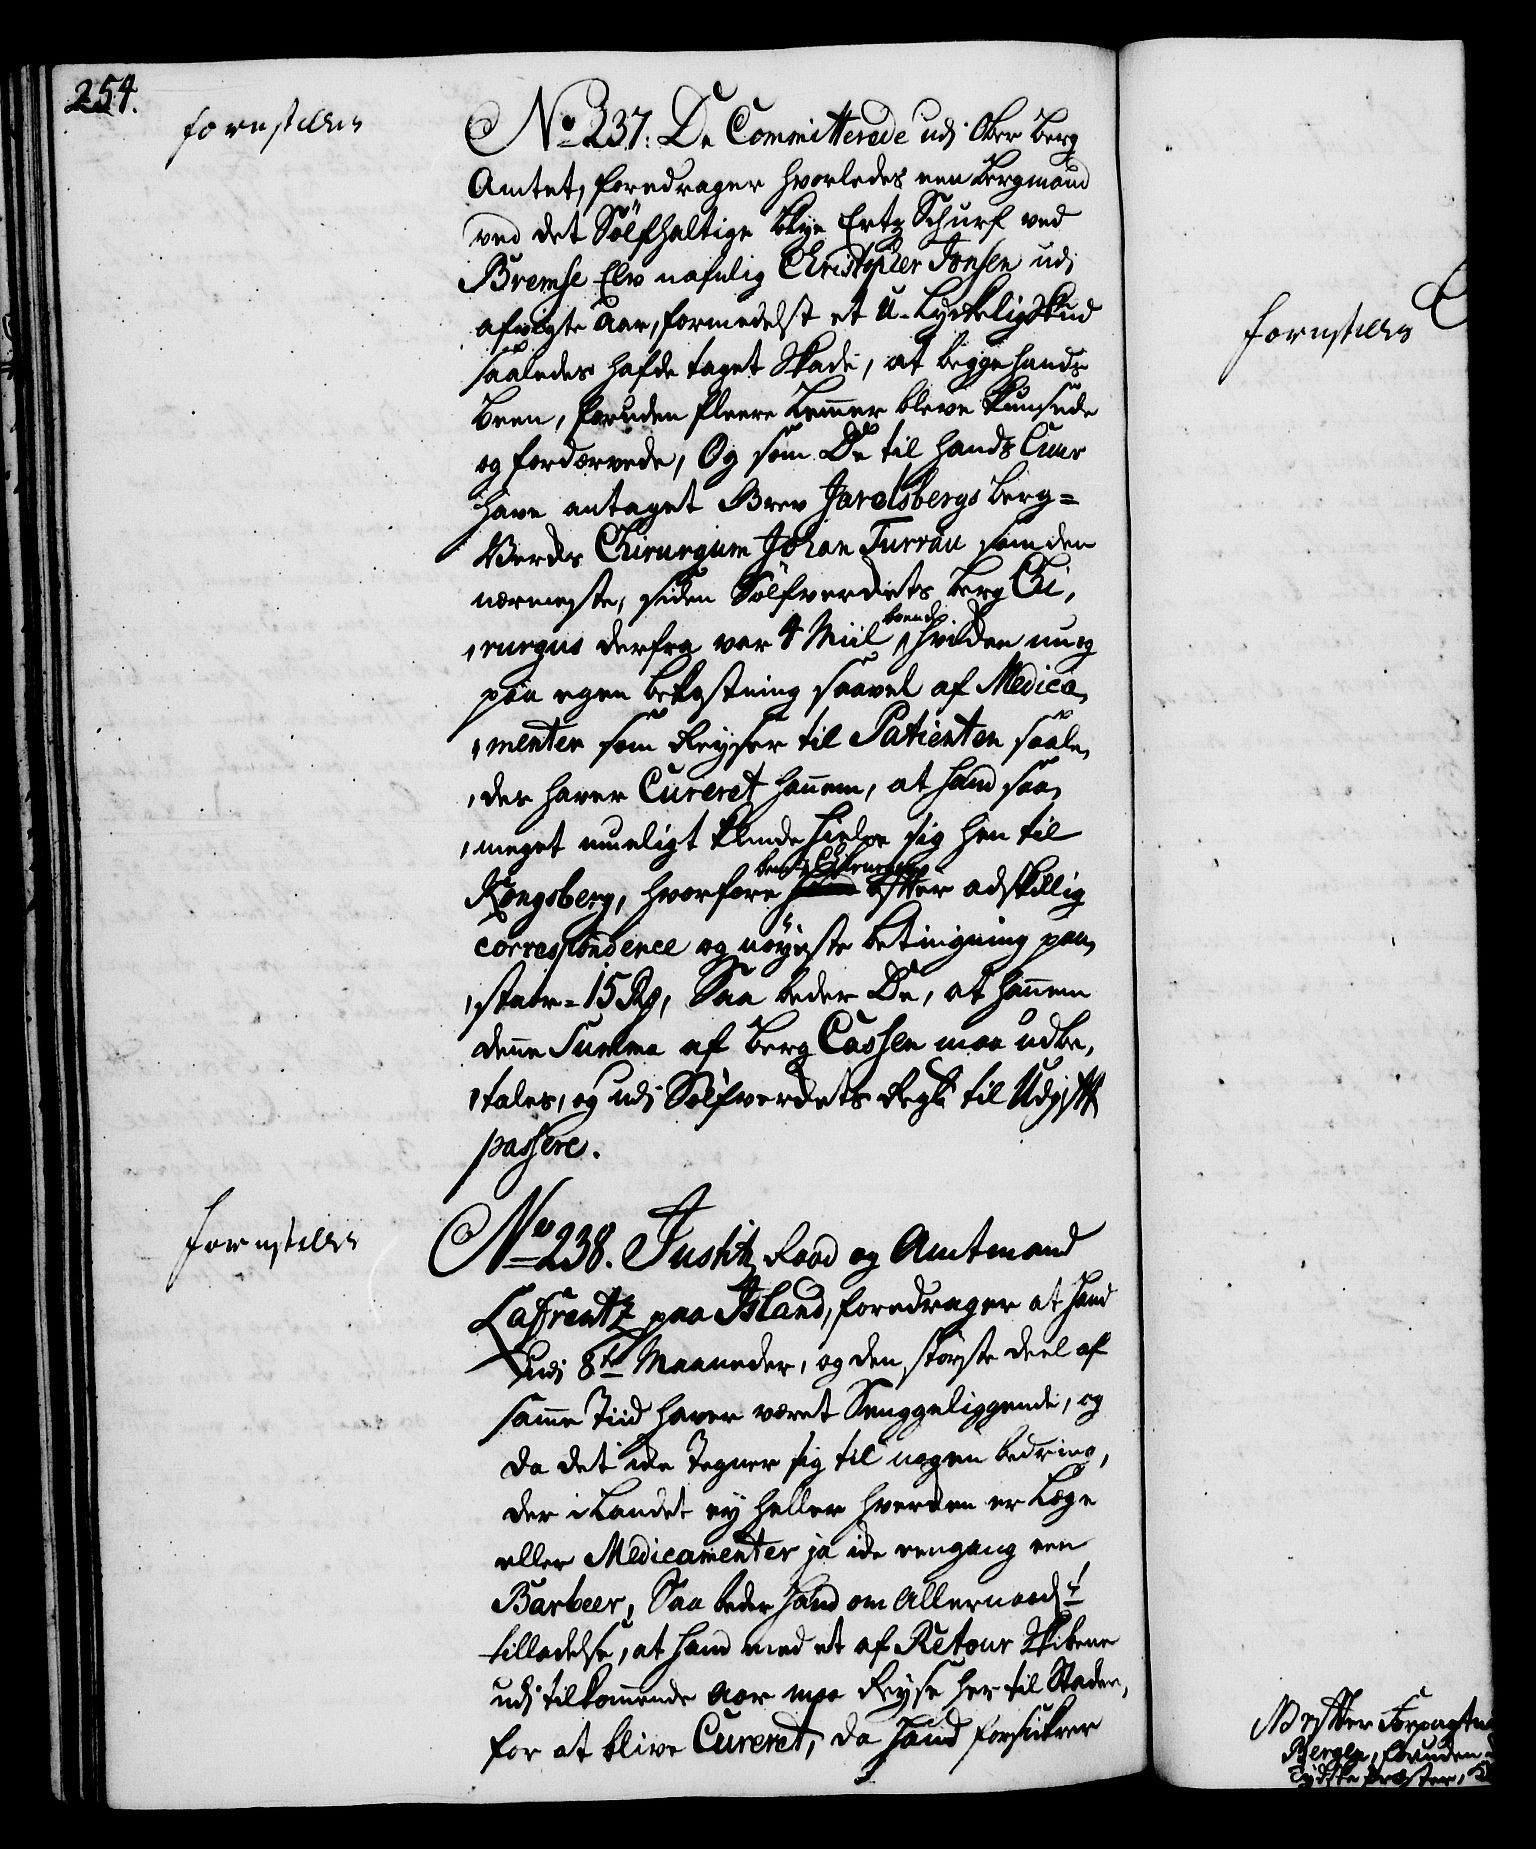 254.
forestilles
No 237. De Committerede udj Ober Berg
Amtet, foredrager hvorledes een Bergmand
ved det Sölfhaltige Blye Ertz Schurf ved
Bremse Elv nafnlig Christopher Jonsen udj
afvigte Aar, formedelst et U-Lyckelig Skud
saaledes hafde taget Skade, at begge hands
Been, foruden fleere Lemmer bleve
og fordærvede, Og som De til hands Cuur
have antaget Grev Jarlsbergs Berg=
Verks Chirurgum Johan Turrau som den
nærmeste, siden Sölfverckets Berg Chi,
,rurgus derfra var 4 Miil boende, hvilken nu og
paa egen bekostning saavel af Medica,
,menter som Reyser til Patienten saale,
,des haver Cureret hannem, at hand saa,
,meget mueligt kunde hielpe sig hen til
Kongsberg, hvorfore bemte Chirurgus efter adskillig
correspondence og nöyeste betingning paa,
,staar = 15 Rd, Saa beder De, at hannem
denne Summa af Berg Cassen maa udbe,
,tales, og udj Sölfverckets Regsk: til Udgift
passere.
forestilles
No 238. Justitz Raad og Amtmand
Laffrentz paa Island, foredrager at hand
udj 8te Maaneder, og den störste deel af
samme Tiid haver været Senggeliggende, og
da det icke Tegner sig til nogen bedring,
der i Landet ey heller hverken er Læge
eller Medicamenter ja icke eengang een
Barbeer, Saa beder hand om Allernaadst
tilladelse, at hand med et af Retour Skibene
udj tilkommende Aar maa Reyse her til Staden,
for at blive Cureret, da hand forsickrer
forestilles
Bergen, foruden
Tydske Præster,